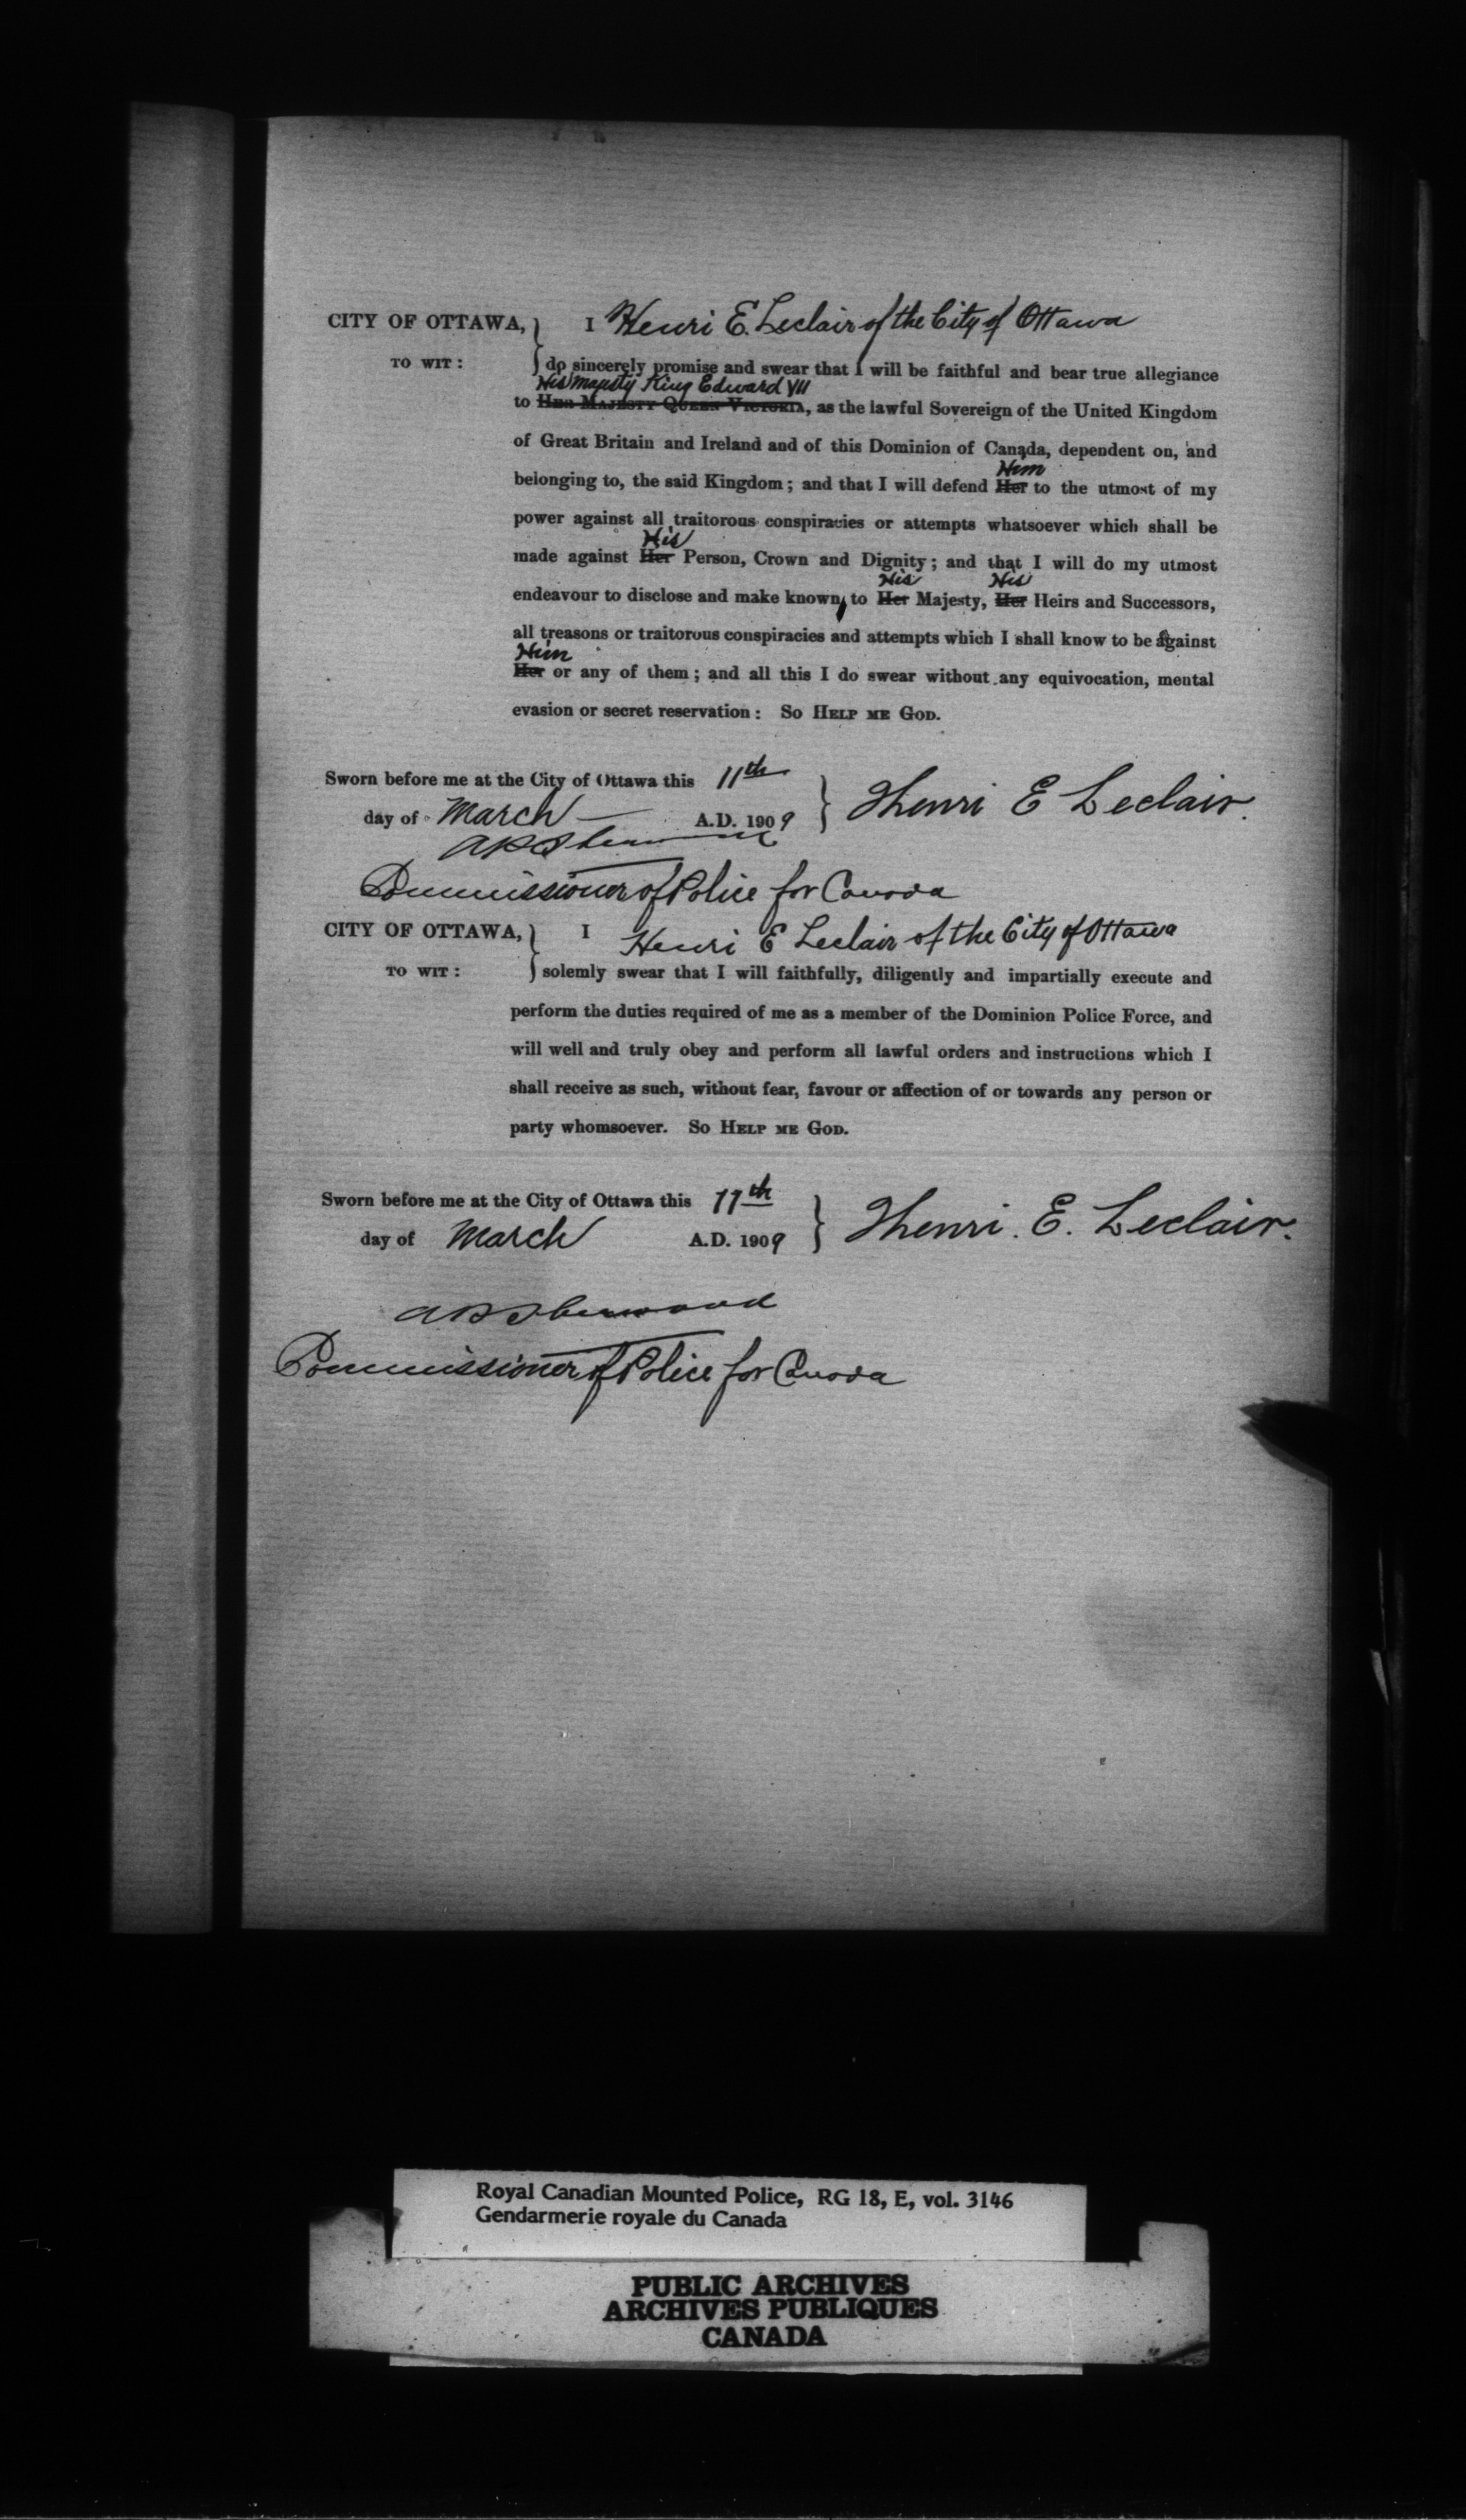 CITY OF OTTAWA, } I Henri E. Leclair of the City of Ottawa
TO WIT : } do sincerely promise and swear that I will be faithful and bear true allegiance
His Majesty King Edward VII
to Her Majesty Queen Victoria, as the lawful Sovereign of the United Kingdom
of Great Britain and Ireland and of this Dominion of Canada, dependent on, and
Him
belonging to, the said Kingdom ; and that I will defend Her to the utmost of my
power against all traitorous conspiracies or attempts whatsoever which shall be
His
made against Her Person, Crown and Dignity ; and that I will do my utmost
His His
endeavour to disclose and make known, to Her Majesty, Her Heirs and Successors,
all treasons or traitorous conspiracies and attempts which I shall know to be against
Him
Her or any of them ; and all this I do swear without any equivocation, mental
evasion or secret reservation : So Help me God.
Sworn before me at the City of Ottawa this 11th
day of March A.D. 1909 } Henri E Leclair.
A P Sherwood
Commissioner of Police for Canada
CITY OF OTTAWA, } I Henri E Leclair of the City of Ottawa
TO WIT : } solemly swear that I will faithfully, diligently and impartially execute and
perform the duties required of me as a member of the Dominion Police Force, and
will well and truly obey and perform all lawful orders and instructions which I
shall receive as such, without fear, favour or affection of or towards any person or
party whomsoever. So Help me God.
Sworn before me at the City of Ottawa this 11th
day of March A.D. 1909 } Henri. E. Leclair.
A P Sherwood
Commissioner of Police for Canada
Royal Canadian Mounted Police, RG 18, E, vol. 3146
Gendarmerie royale du Canada
PUBLIC ARCHIVES
ARCHIVES PUBLIQUES
CANADA